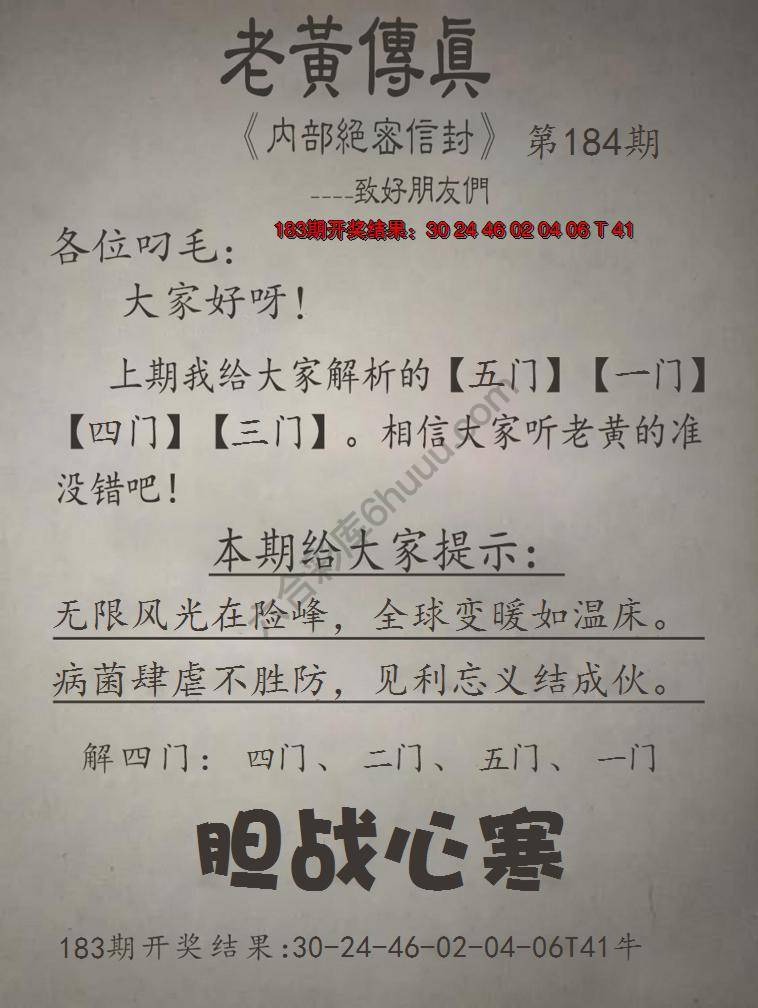 老黃傳眞
《内部絕密信封》 第184期
----致好朋友們
183期开奖结果：30 24 46 02 04 06 T 41
各位叼毛：
大家好呀！
上期我给大家解析的【五门】【一门】
【四门】【三门】。相信大家听老黄的准
没错吧！
本期给大家提示：
无限风光在险峰，全球变暖如温床。
病菌肆虐不胜防，见利忘义结成伙。
解四门： 四门、 二门、 五门、 一门
胆战心寒
183期开奖结果:30-24-46-02-04-06T41牛
六合彩库6huuu.com